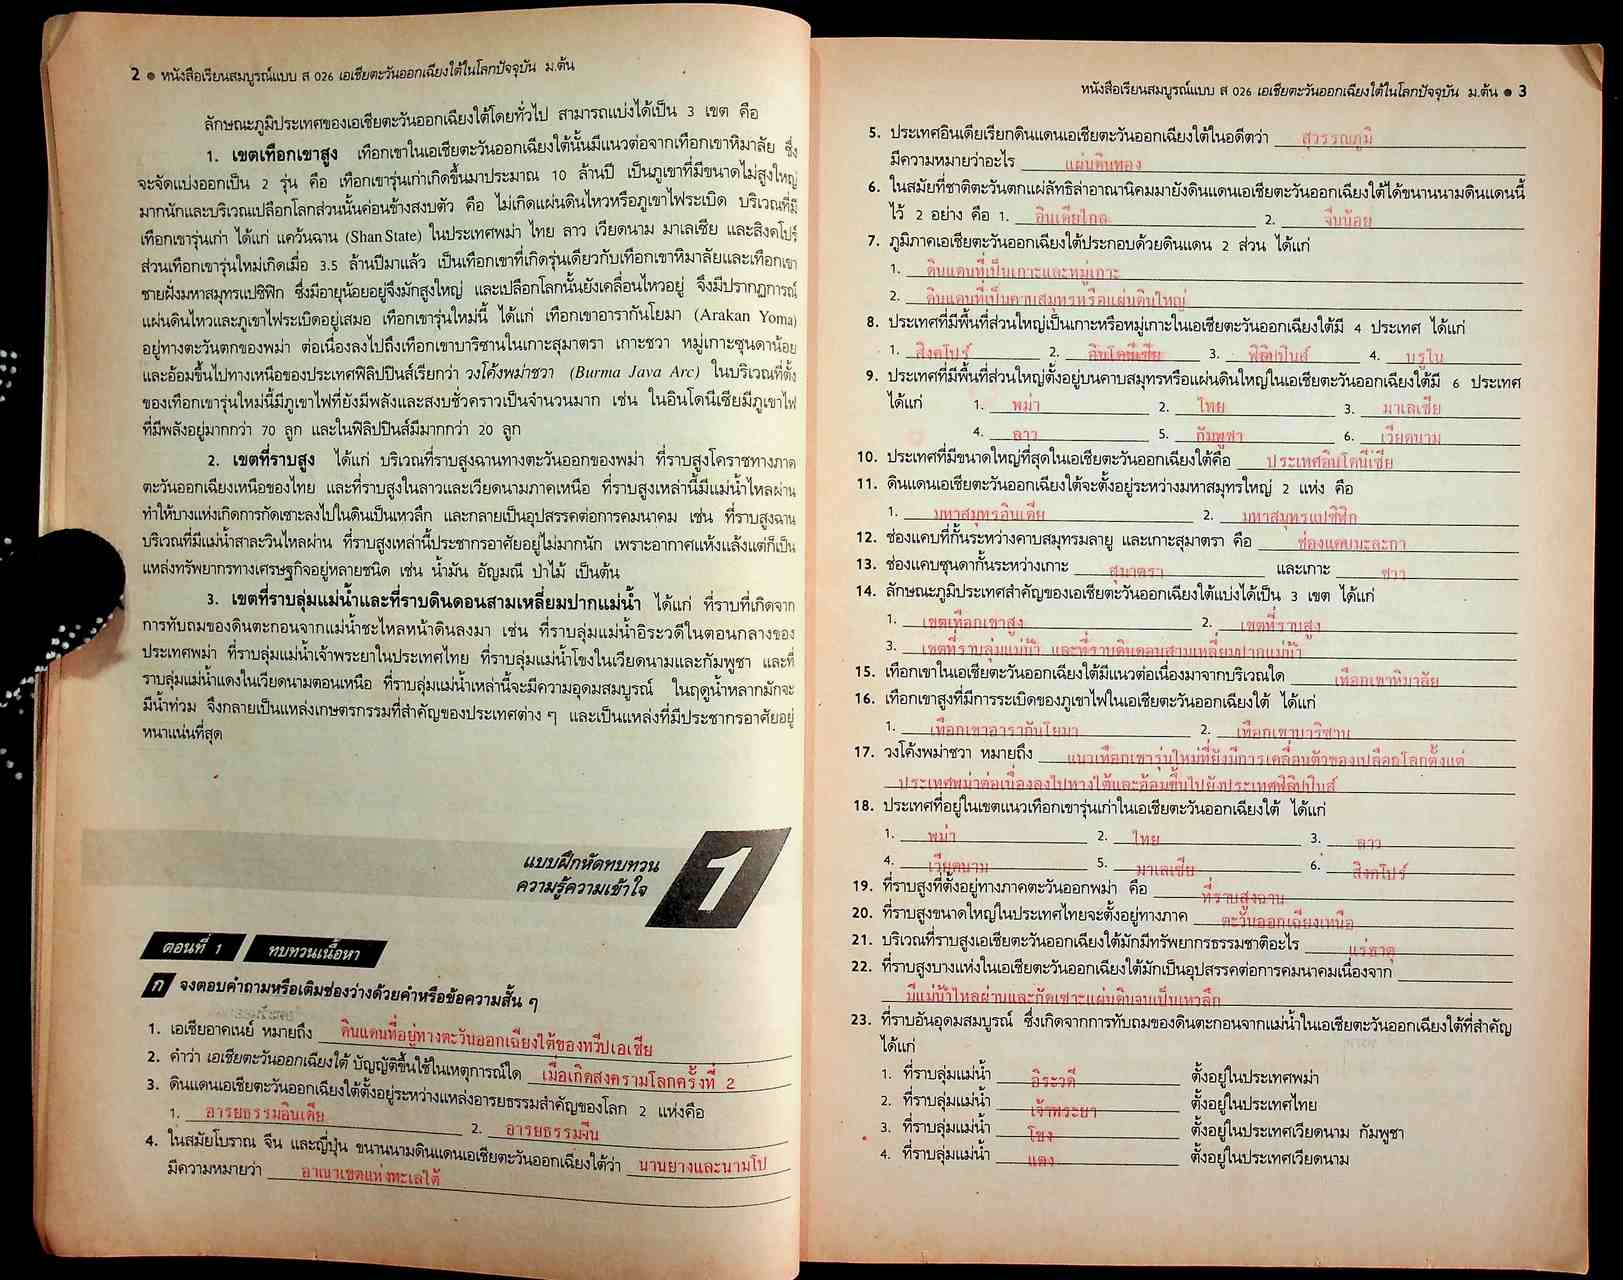 2 ● หนังสือเรียนสมบูรณ์แบบ ส 026 เอเชียตะวันออกเฉียงใต้ในโลกปัจจุบัน ม.ต้น
ลักษณะภูมิประเทศของเอเชียตะวันออกเฉียงใต้โดยทั่วไป สามารถแบ่งได้เป็น 3 เขต คือ
1. เขตเทือกเขาสูง เทือกเขาในเอเชียตะวันออกเฉียงใต้นั้นมีแนวต่อจากเทือกเขาหิมาลัย ซึ่ง
จะจัดแบ่งออกเป็น 2 รุ่น คือ เทือกเขารุ่นเก่าเกิดขึ้นมาประมาณ 10 ล้านปี เป็นภูเขาที่มีขนาดไม่สูงใหญ่
มากนักและบริเวณเปลือกโลกส่วนนั้นค่อนข้างสงบตัว คือ ไม่เกิดแผ่นดินไหวหรือภูเขาไฟระเบิด บริเวณที่มี
เทือกเขารุ่นเก่า ได้แก่ แคว้นฉาน (Shan State) ในประเทศพม่า ไทย ลาว เวียดนาม มาเลเซีย และสิงคโปร์
ส่วนเทือกเขารุ่นใหม่เกิดเมื่อ 3.5 ล้านปีมาแล้ว เป็นเทือกเขาที่เกิดรุ่นเดียวกับเทือกเขาหิมาลัยและเทือกเขา
ชายฝั่งมหาสมุทรแปซิฟิก ซึ่งมีอายุน้อยอยู่จึงมักสูงใหญ่ และเปลือกโลกนั้นยังเคลื่อนไหวอยู่ จึงมีปรากฏการณ์
แผ่นดินไหวและภูเขาไฟระเบิดอยู่เสมอ เทือกเขารุ่นใหม่นี้ ได้แก่ เทือกเขาอารากันโยมา (Arakan Yoma)
อยู่ทางตะวันตกของพม่า ต่อเนื่องลงไปถึงเทือกเขาบาริซานในเกาะสุมาตรา เกาะชวา หมู่เกาะซุนดาน้อย
และอ้อมขึ้นไปทางเหนือของประเทศฟิลิปปินส์เรียกว่า วงโค้งพม่าชวา (Burma Java Arc) ในบริเวณที่ตั้ง
ของเทือกเขารุ่นใหม่นี้มีภูเขาไฟที่ยังมีพลังและสงบชั่วคราวเป็นจำนวนมาก เช่น ในอินโดนีเซียมีภูเขาไฟ
ที่มีพลังอยู่มากกว่า 70 ลูก และในฟิลิปปินส์มีมากกว่า 20 ลูก
2. เขตที่ราบสูง ได้แก่ บริเวณที่ราบสูงฉานทางตะวันออกของพม่า ที่ราบสูงโคราชทางภาค
ตะวันออกเฉียงเหนือของไทย และที่ราบสูงในลาวและเวียดนามภาคเหนือ ที่ราบสูงเหล่านี้มีแม่น้ำไหลผ่าน
ทำให้บางแห่งเกิดการกัดเซาะลงไปในดินเป็นเหวลึก และกลายเป็นอุปสรรคต่อการคมนาคม เช่น ที่ราบสูงฉาน
บริเวณที่มีแม่น้ำสาละวินไหลผ่าน ที่ราบสูงเหล่านี้ประชากรอาศัยอยู่ไม่มากนัก เพราะอากาศแห้งแล้งแต่ก็เป็น
แหล่งทรัพยากรทางเศรษฐกิจอยู่หลายชนิด เช่น น้ำมัน อัญมณี ป่าไม้ เป็นต้น
3. เขตที่ราบลุ่มแม่น้ำและที่ราบดินดอนสามเหลี่ยมปากแม่น้ำ ได้แก่ ที่ราบที่เกิดจาก
การทับถมของดินตะกอนจากแม่น้ำชะไหลหน้าดินลงมา เช่น ที่ราบลุ่มแม่น้ำอิระวดีในตอนกลางของ
ประเทศพม่า ที่ราบลุ่มแม่น้ำเจ้าพระยาในประเทศไทย ที่ราบลุ่มแม่น้ำโขงในเวียดนามและกัมพูชา และที่
ราบลุ่มแม่น้ำแดงในเวียดนามตอนเหนือ ที่ราบลุ่มแม่น้ำเหล่านี้จะมีความอุดมสมบูรณ์ ในฤดูน้ำหลากมักจะ
มีน้ำท่วม จึงกลายเป็นแหล่งเกษตรกรรมที่สำคัญของประเทศต่าง ๆ และเป็นแหล่งที่มีประชากรอาศัยอยู่
หนาแน่นที่สุด
แบบฝึกหัดทบทวน
ความรู้ความเข้าใจ
1
ตอนที่ 1 ทบทวนเนื้อหา
ก จงตอบคำถามหรือเติมช่องว่างด้วยคำหรือข้อความสั้น ๆ
1. เอเชียอาคเนย์ หมายถึง ดินแดนที่อยู่ทางตะวันออกเฉียงใต้ของทวีปเอเชีย
2. คำว่า เอเชียตะวันออกเฉียงใต้ บัญญัติขึ้นใช้ในเหตุการณ์ใด เมื่อเกิดสงครามโลกครั้งที่ 2
3. ดินแดนเอเชียตะวันออกเฉียงใต้ตั้งอยู่ระหว่างแหล่งอารยธรรมสำคัญของโลก 2 แห่งคือ
1. อารยธรรมอินเดีย 2. อารยธรรมจีน
4. ในสมัยโบราณ จีน และญี่ปุ่น ขนานนามดินแดนเอเชียตะวันออกเฉียงใต้ว่า นานยางและนามโป
มีความหมายว่า อาณาเขตแห่งทะเลใต้
หนังสือเรียนสมบูรณ์แบบ ส 026 เอเชียตะวันออกเฉียงใต้ในโลกปัจจุบัน ม.ต้น ● 3
5. ประเทศอินเดียเรียกดินแดนเอเชียตะวันออกเฉียงใต้ในอดีตว่า สุวรรณภูมิ
มีความหมายว่าอะไร แผ่นดินทอง
6. ในสมัยที่ชาติตะวันตกแผ่ลัทธิล่าอาณานิคมมายังดินแดนเอเชียตะวันออกเฉียงใต้ได้ขนานนามดินแดนนี้
ไว้ 2 อย่าง คือ 1. อินเดียไกล 2. จีนน้อย
7. ภูมิภาคเอเชียตะวันออกเฉียงใต้ประกอบด้วยดินแดน 2 ส่วน ได้แก่
1. ดินแดนที่เป็นเกาะและหมู่เกาะ
2. ดินแดนที่เป็นคาบสมุทรหรือแผ่นดินใหญ่
8. ประเทศที่มีพื้นที่ส่วนใหญ่เป็นเกาะหรือหมู่เกาะในเอเชียตะวันออกเฉียงใต้มี 4 ประเทศ ได้แก่
1. สิงคโปร์ 2. อินโดนีเซีย 3. ฟิลิปปินส์ 4. บรูไน
9. ประเทศที่มีพื้นที่ส่วนใหญ่ตั้งอยู่บนคาบสมุทรหรือแผ่นดินใหญ่ในเอเชียตะวันออกเฉียงใต้มี 6 ประเทศ
ได้แก่ 1. พม่า 2. ไทย 3. มาเลเซีย
4. ลาว 5. กัมพูชา 6. เวียดนาม
10. ประเทศที่มีขนาดใหญ่ที่สุดในเอเชียตะวันออกเฉียงใต้คือ ประเทศอินโดนีเซีย
11. ดินแดนเอเชียตะวันออกเฉียงใต้จะตั้งอยู่ระหว่างมหาสมุทรใหญ่ 2 แห่ง คือ
1. มหาสมุทรอินเดีย 2. มหาสมุทรแปซิฟิก
12. ช่องแคบที่กั้นระหว่างคาบสมุทรมลายู และเกาะสุมาตรา คือ ช่องแคบมะละกา
13. ช่องแคบซุนดากั้นระหว่างเกาะ สุมาตรา และเกาะ ชวา
14. ลักษณะภูมิประเทศสำคัญของเอเชียตะวันออกเฉียงใต้แบ่งได้เป็น 3 เขต ได้แก่
1. เขตเทือกเขาสูง 2. เขตที่ราบสูง
3. เขตที่ราบลุ่มแม่น้ำ และที่ราบดินดอนสามเหลี่ยมปากแม่น้ำ
15. เทือกเขาในเอเชียตะวันออกเฉียงใต้มีแนวต่อเนื่องมาจากบริเวณใด เทือกเขาหิมาลัย
16. เทือกเขาสูงที่มีการระเบิดของภูเขาไฟในเอเชียตะวันออกเฉียงใต้ ได้แก่
1. เทือกเขาอารากันโยมา 2. เทือกเขาบาริซาน
17. วงโค้งพม่าชวา หมายถึง แนวเทือกเขารุ่นใหม่ที่ยังมีการเคลื่อนตัวของเปลือกโลกตั้งแต่
ประเทศพม่าต่อเนื่องลงไปทางใต้และอ้อมขึ้นไปยังประเทศฟิลิปปินส์
18. ประเทศที่อยู่ในเขตแนวเทือกเขารุ่นเก่าในเอเชียตะวันออกเฉียงใต้ ได้แก่
1. พม่า 2. ไทย 3. ลาว
4. เวียดนาม 5. มาเลเซีย 6. สิงคโปร์
19. ที่ราบสูงที่ตั้งอยู่ทางภาคตะวันออกพม่า คือ ที่ราบสูงฉาน
20. ที่ราบสูงขนาดใหญ่ในประเทศไทยจะตั้งอยู่ทางภาค ตะวันออกเฉียงเหนือ
21. บริเวณที่ราบสูงเอเชียตะวันออกเฉียงใต้มักมีทรัพยากรธรรมชาติอะไร แร่ธาตุ
22. ที่ราบสูงบางแห่งในเอเชียตะวันออกเฉียงใต้มักเป็นอุปสรรคต่อการคมนาคมเนื่องจาก
มีแม่น้ำไหลผ่านและกัดเซาะแผ่นดินจนเป็นเหวลึก
23. ที่ราบอันอุดมสมบูรณ์ ซึ่งเกิดจากการทับถมของดินตะกอนจากแม่น้ำในเอเชียตะวันออกเฉียงใต้ที่สำคัญ
ได้แก่
1. ที่ราบลุ่มแม่น้ำ อิระวดี ตั้งอยู่ในประเทศพม่า
2. ที่ราบลุ่มแม่น้ำ เจ้าพระยา ตั้งอยู่ในประเทศไทย
3. ที่ราบลุ่มแม่น้ำ โขง ตั้งอยู่ในประเทศเวียดนาม กัมพูชา
4. ที่ราบลุ่มแม่น้ำ แดง ตั้งอยู่ในประเทศเวียดนาม